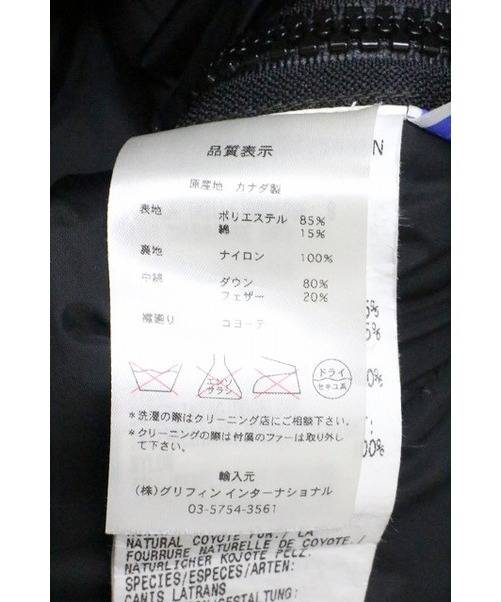 品質表示
原産地 カナダ製
表地 ポリエステル 85%
綿 15%
裏地 ナイロン 100%
中綿 ダウン 80%
フェザー 20%
襟廻り コヨーテ
エンソサラシ
ドライ
セキユ系
*洗濯の際はクリーニング店にご相談下さい。
*クリーニングの際は付属のファーは取り外し
て下さい。
輸入元
(株)グリフィン インターナショナル
03-5754-3561
N
5%
5%
0%
T:
00%
NATURAL COYOTE FUR./ LA
FOURRURE NATURELLE DE COYOTE./
NATURLICHER KOJOTE PELZ.
SPECIES/ESPECES/ARTEN:
CANIS LATRANS